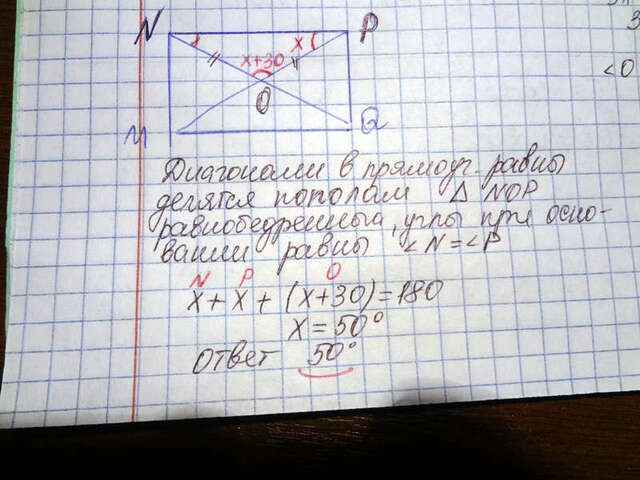 N P
x
x+30
O
M Q
3
<O
Диагонали в прямоуг. равны
делятся пополам Δ NOP
равнобедренный, углы при осно-
вании равны <N=<P
N P O
x+x+(x+30)=180
x=50°
ответ 50°